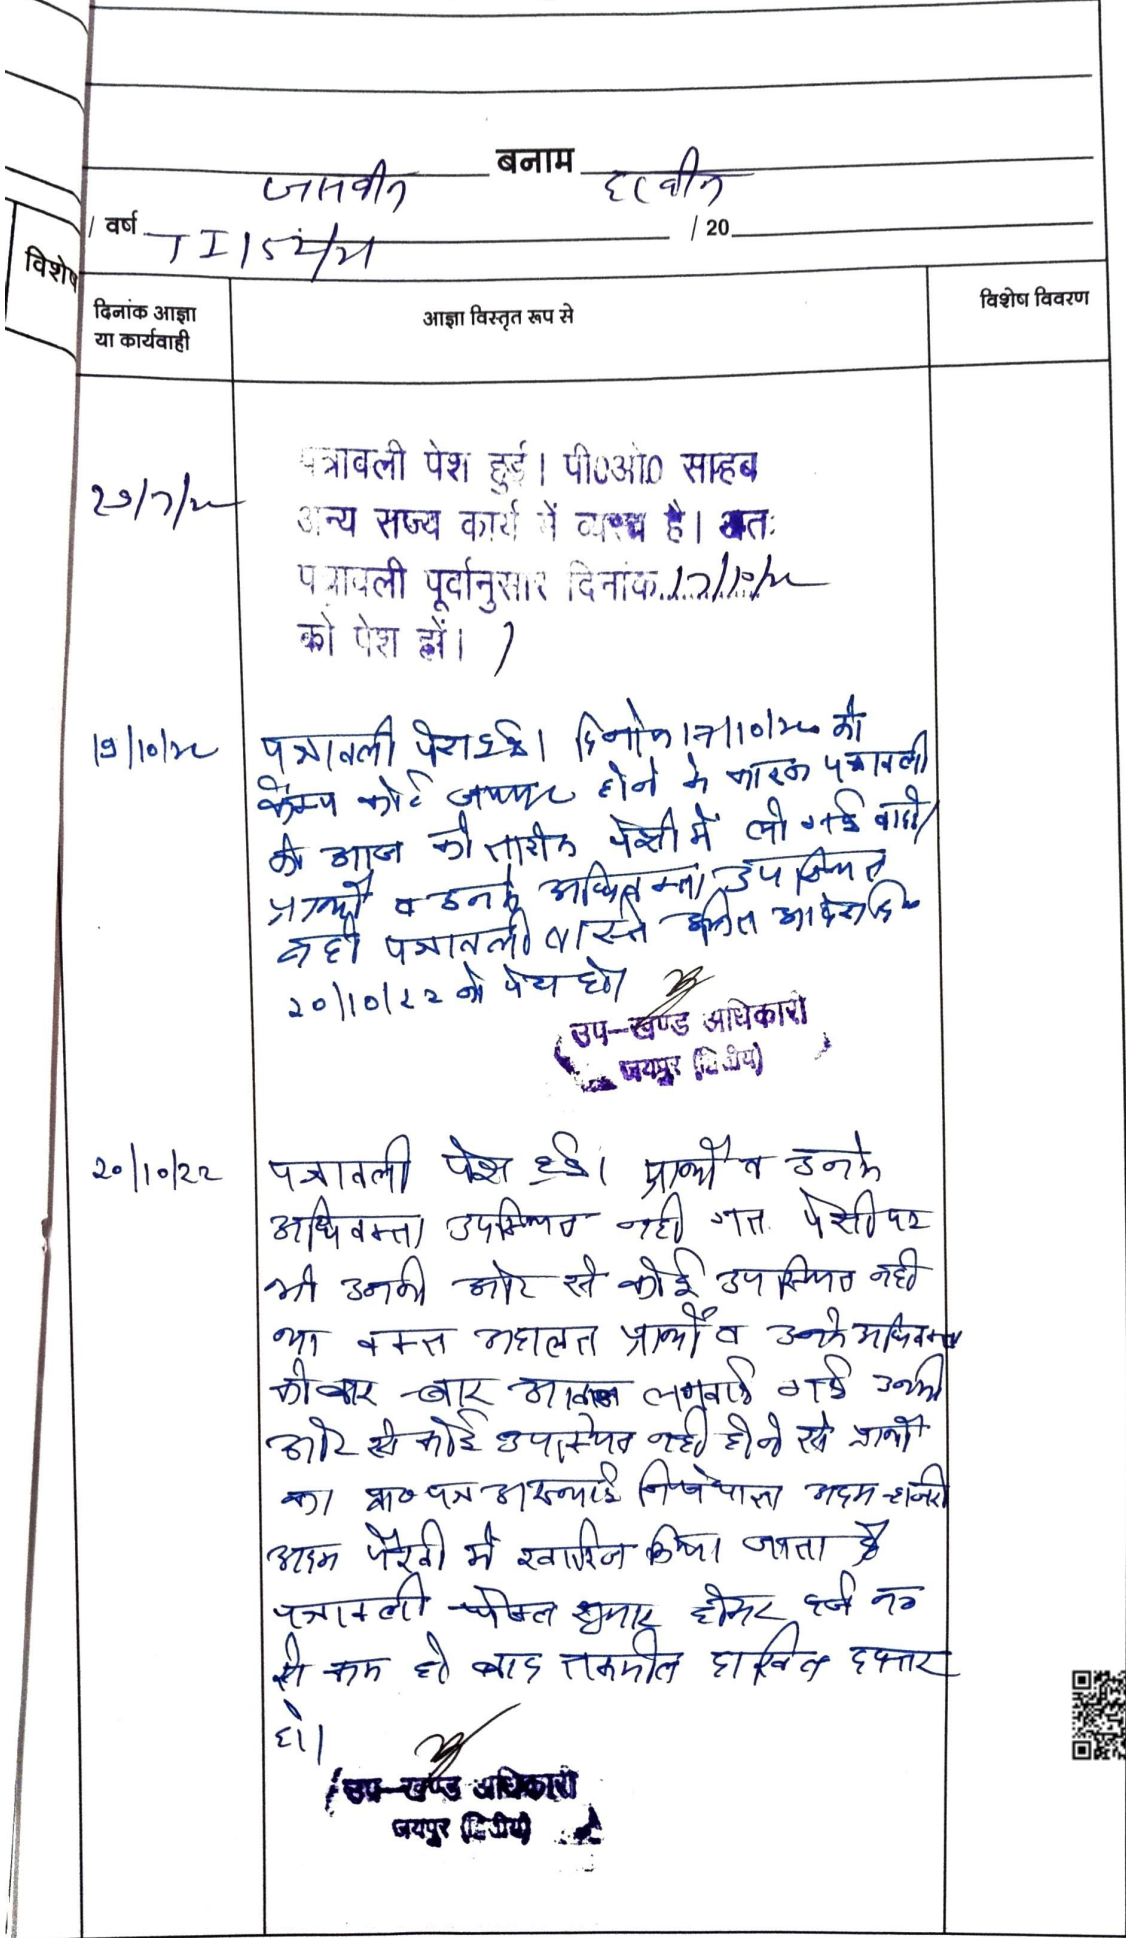 बनाम
जसवीर हरवीर
/ वर्ष TI/52/21 / 20
विशेष
दिनांक आज्ञा
या कार्यवाही
आज्ञा विस्तृत रूप से
विशेष विवरण
पत्रावली पेश हुई। पी0ओ0 साहब
अन्य राज्य कार्य में व्यस्त है। अतः
पत्रावली पूर्वानुसार दिनांक 17/10/22
को पेश हों।
19/10/22 पत्रावली पेश हुई। दिनांक 17/10/22 को
कैम्प कोर्ट होने के कारण पत्रावली
को आज की तारीख पेशी में ली गई वादी/
प्रार्थी व उनके अधिवक्ता उपस्थित
नही पत्रावली वास्ते उचित आदेश दि
20/10/22 को पेश हो।
उप-खण्ड अधिकारी
जयपुर (द्वितीय)
20/10/22 पत्रावली पेश हुई। प्रार्थी व उनके
अधिवक्ता उपस्थित नही गत पेशी पर
भी उनकी ओर से कोई उपस्थित नही
था वक्त अदालत प्रार्थी व उनके अधिवक्ता
को बार-बार आवाज लगवाई गई उनकी
ओर से कोई उपस्थित नही होने से प्रार्थी
का प्रा० पत्र अस्थाई निषेधाज्ञा अदम हाजरी
अदम पैरवी में खारिज किया जाता है
पत्रावली फैसल शुमार होकर दर्ज नं०
से कम हो बाद तकमील दाखिल दफ्तर
हो।
उप-खण्ड अधिकारी
जयपुर (द्वितीय)